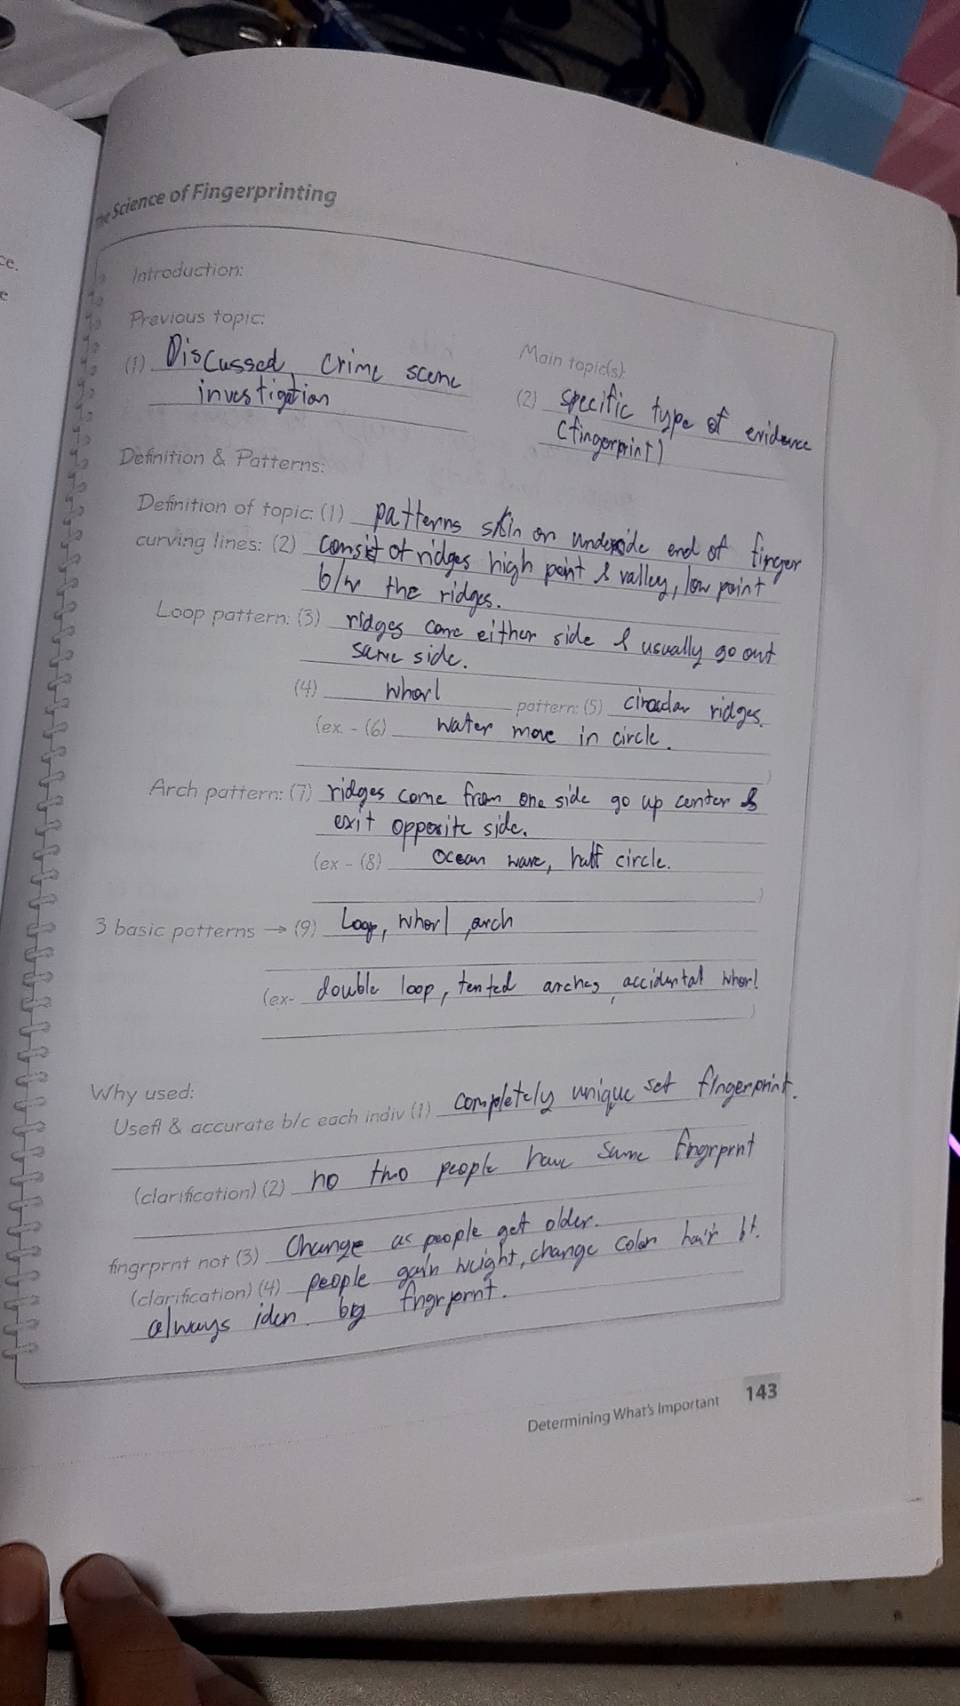 The Science of Fingerprinting
ce.
e
Introduction:
Previous topic:
(1) Discussed crime scene
investigation
Main topic(s):
(2) specific type of evidence
(fingerprint)
Definition & Patterns:
Definition of topic: (1) patterns skin on underside end of finger
curving lines: (2) consist of ridges high point & valley, low point
b/w the ridges.
Loop pattern: (3) ridges come either side & usually go out
same side.
(4) whorl pattern: (5) circular ridges.
(ex. - (6) water move in circle.
)
Arch pattern: (7) ridges come from one side go up center &
exit opposite side.
(ex - (8) ocean wave, half circle.
)
3 basic patterns → (9) Loop, whorl, arch
(ex- double loop, tented arches, accidental whorl
)
Why used:
Usefl & accurate b/c each indiv (1) completely unique set fingerprint.
(clarification) (2) no two people have same fngrprnt
fingrprnt not (3) Change as people get older.
(clarification) (4) people gain weight, change color hair bt.
always iden. by fngrprnt.
Determining What's Important 143